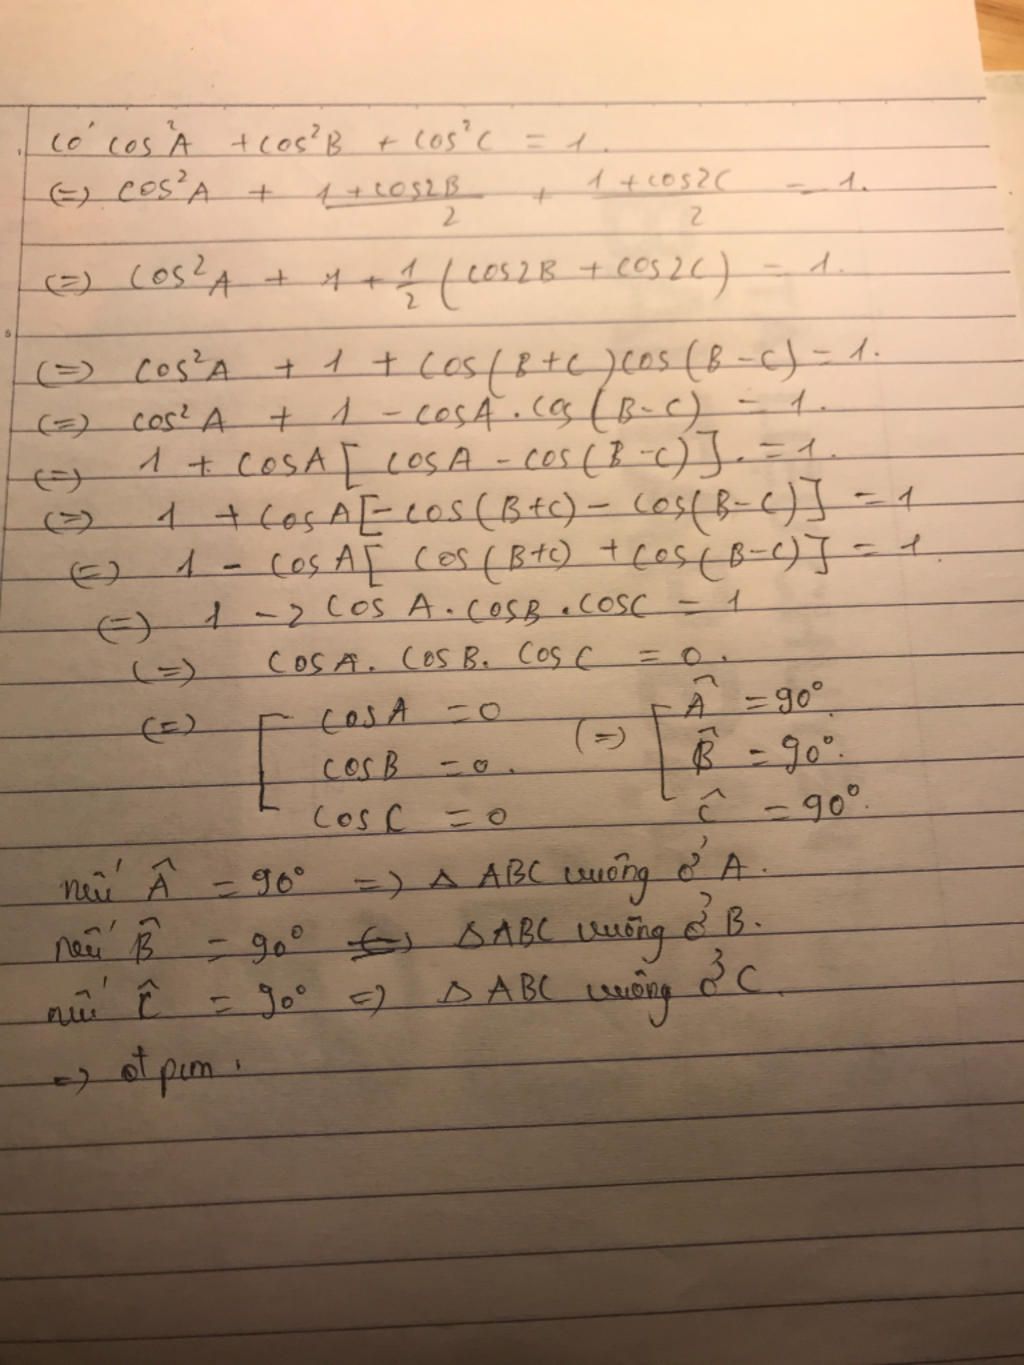 có cos²A + cos²B + cos²C = 1.
(=) cos²A + (1+cos2B)/2 + (1+cos2C)/2 = 1.
(=) cos²A + 1 + 1/2 (cos2B + cos2C) = 1.
(=) cos²A + 1 + cos(B+C)cos(B-C) = 1.
(=) cos²A + 1 - cosA.cos(B-C) = 1.
(=) 1 + cosA[cosA - cos(B-C)]. = 1.
(=) 1 + cosA[-cos(B+C) - cos(B-C)] = 1
(=) 1 - cosA[cos(B+C) + cos(B-C)] = 1.
(=) 1 - 2cosA.cosB.cosC = 1
(=) cosA. cosB. cosC = 0.
(=) [ cosA = 0 (=) [ Â = 90°.
cosB = 0. B̂ = 90°.
cosC = 0 Ĉ = 90°.
nếu Â = 90° => Δ ABC vuông ở A.
nếu B̂ = 90° => Δ ABC vuông ở B.
nếu Ĉ = 90° => Δ ABC vuông ở C.
=> đpcm.